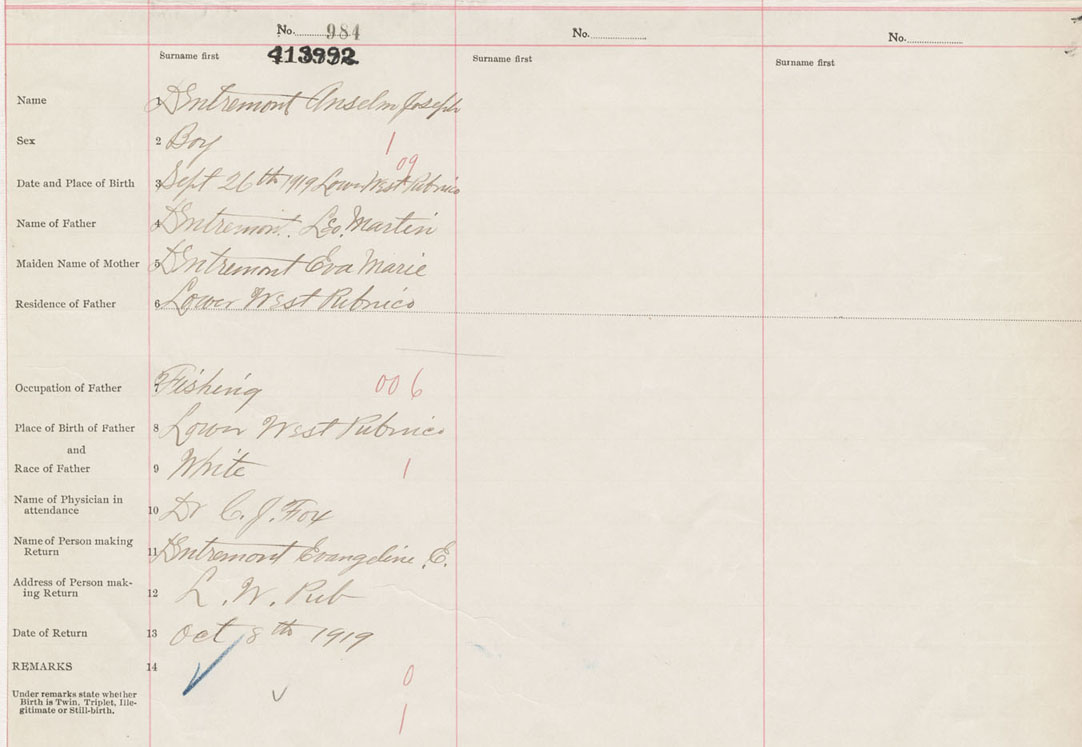 No. 984 No. No.
Surname first 413992 Surname first Surname first
Name 1 D'Entremont Anselm Joseph
Sex 2 Boy 1
09
Date and Place of Birth 3 Sept 26th 1919 Lower West Pubnico
Name of Father 4 D'Entremont. Leo. Martin
Maiden Name of Mother 5 D'Entremont Eva Marie
Residence of Father 6 Lower West Pubnico
Occupation of Father 7 Fishing 006
Place of Birth of Father 8 Lower West Pubnico
and
Race of Father 9 White 1
Name of Physician in
attendance 10 Dr C. J. Fox
Name of Person making
Return 11 D'Entremont Evangeline. E.
Address of Person mak-
ing Return 12 L. W. Pub
Date of Return 13 Oct 8th 1919
REMARKS 14
0
Under remarks state whether
Birth is Twin, Triplet, Ille-
gitimate or Still-birth.
1